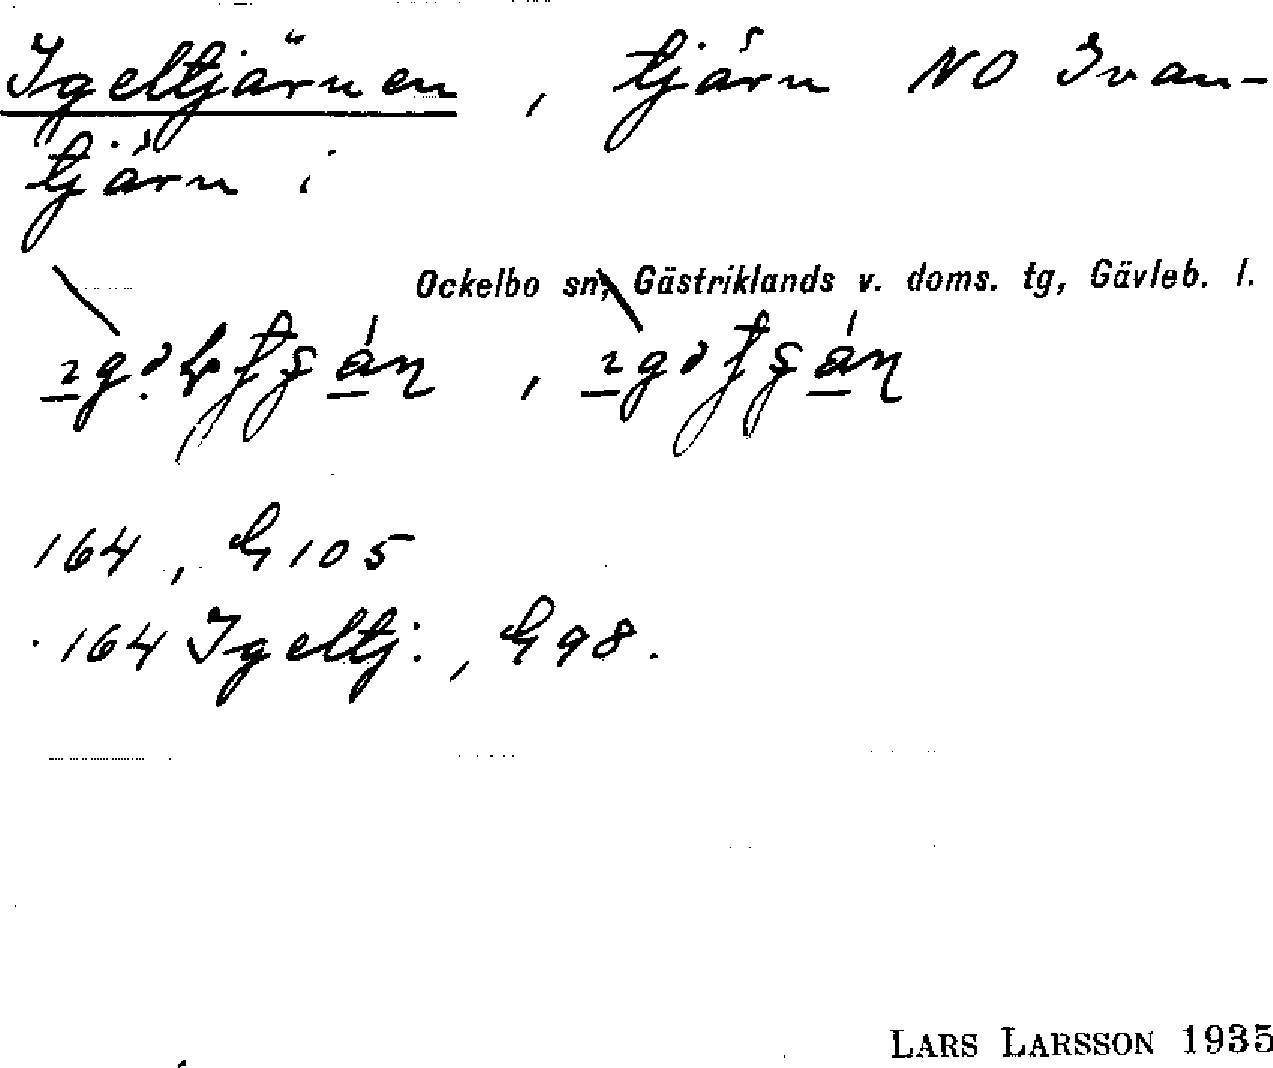 Igeltjärnen, tjärn NO Ivan-
tjärn i
Ockelbo sn, Gästriklands v. doms. tg, Gävleb. l.
164, G 105
164 Igeltj:, G 98.
LARS LARSSON 1935